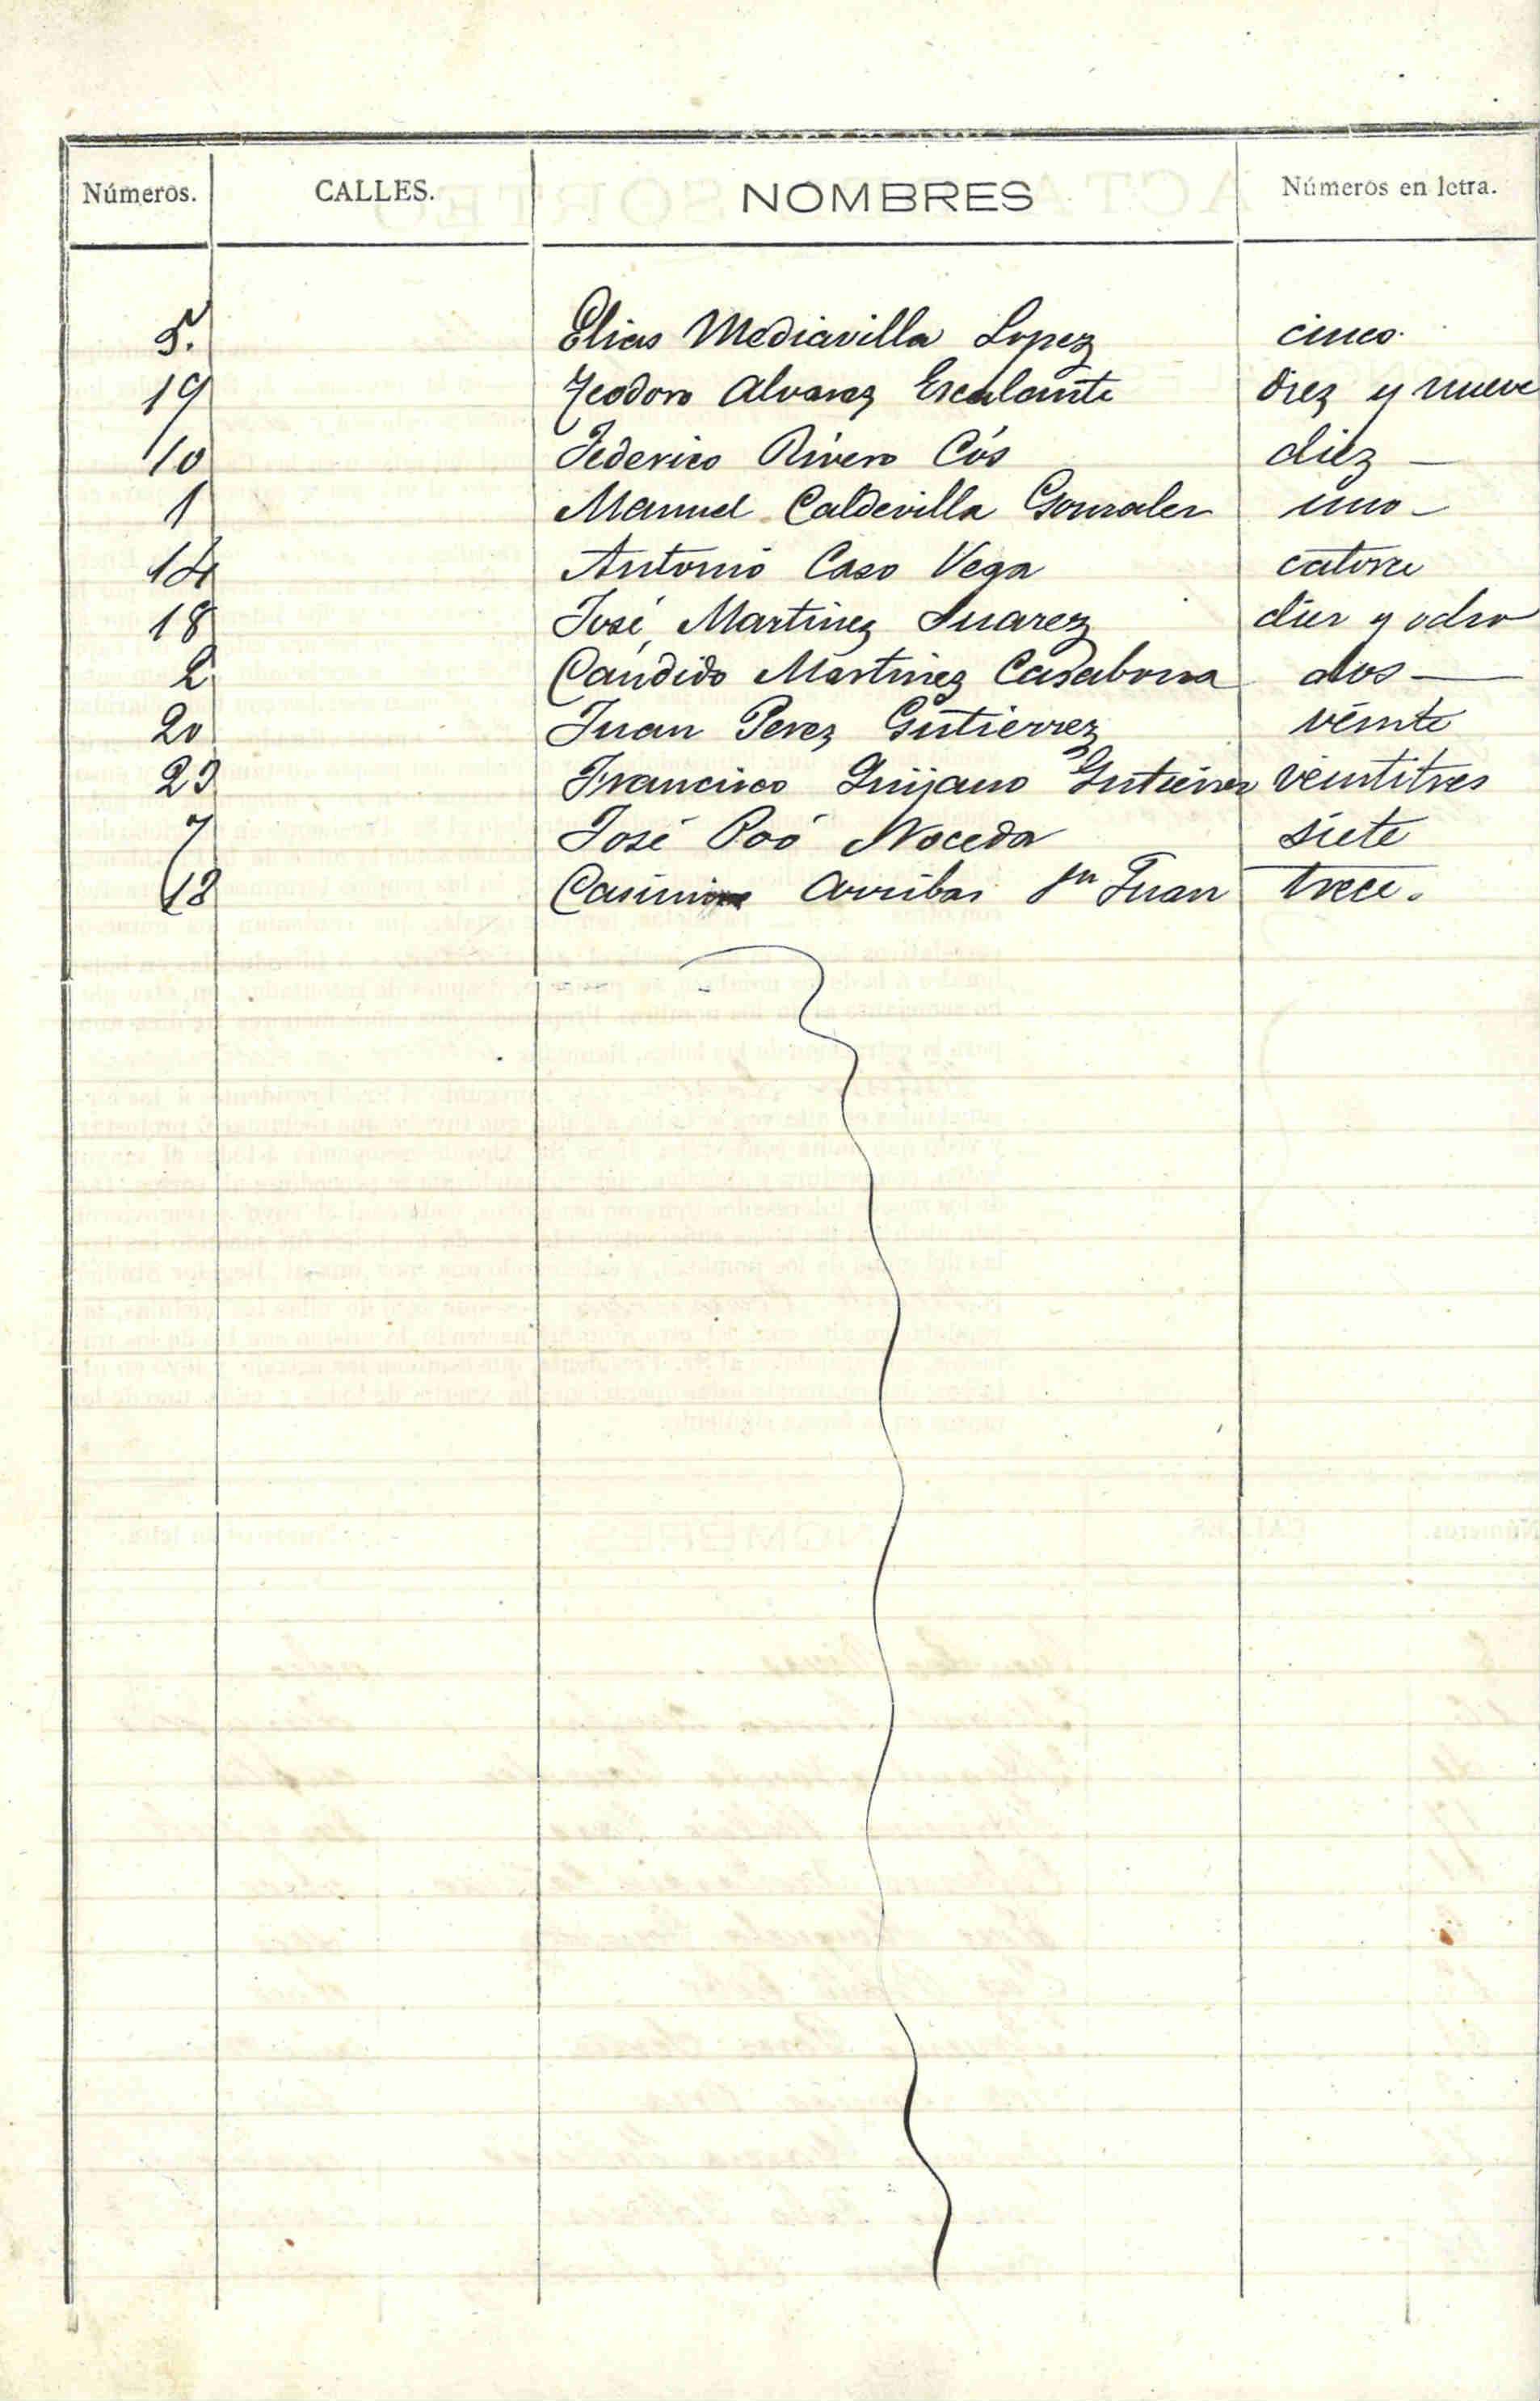 Números. CALLES. NOMBRES Números en letra.
5. Elias Mediavilla Lopez cinco.
19 Teodoro Alvarez Escalante diez y nueve
10 Federico Rivero Cós diez —
1 Manuel Caldevilla Gonzalez uno -
14 Antonio Caso Vega catorce
18 José Martinez Suarez diez y ocho
2 Cándido Martinez Casabona dos —
20 Juan Perez Gutierrez veinte
23 Francisco Guijano Gutierrez veintitres
7 José Poó Noceda siete
13 Casimiro Arribas Sn Juan trece.